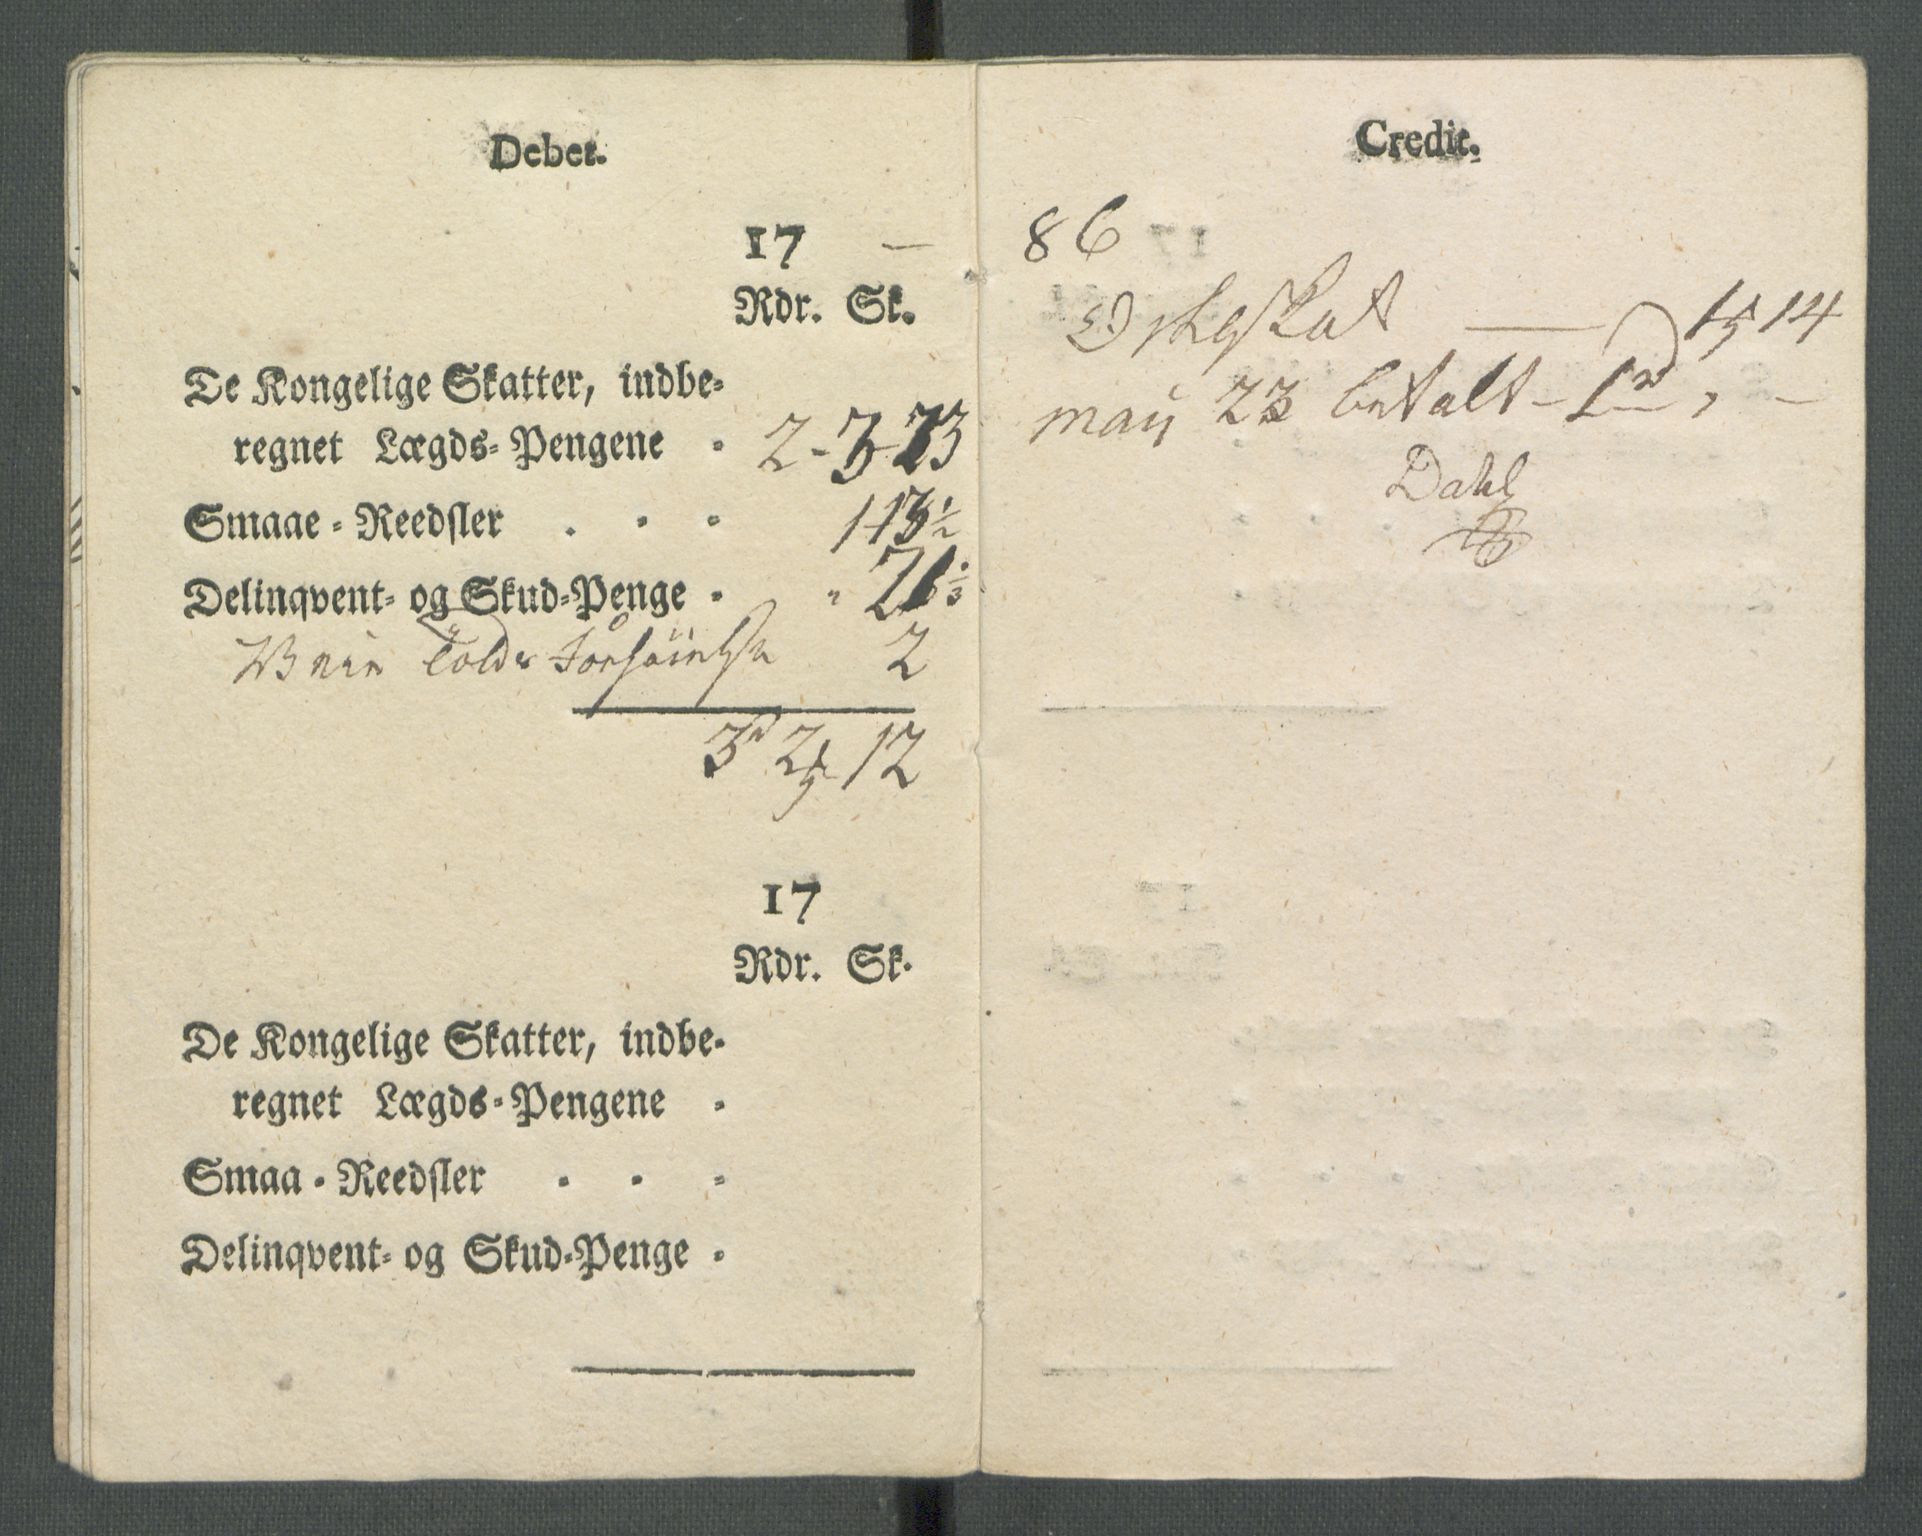 Debet.
17 —
Rdr. Sk.
De Kongelige Skatter, indbe-
regnet Lægds-Pengene - 2-3-23
Smaae-Reedsler . - - 1-13½
Delinqvent- og Skud-Penge -
2
3 2 12
17
Rdr. Sk.
De Kongelige Skatter, indbe-
regnet Lægds-Pengene -
Smaa-Reedsler - - -
Delinqvent- og Skud-Penge -
Credit.
86
14
may 23 betalt - 1
Dahl